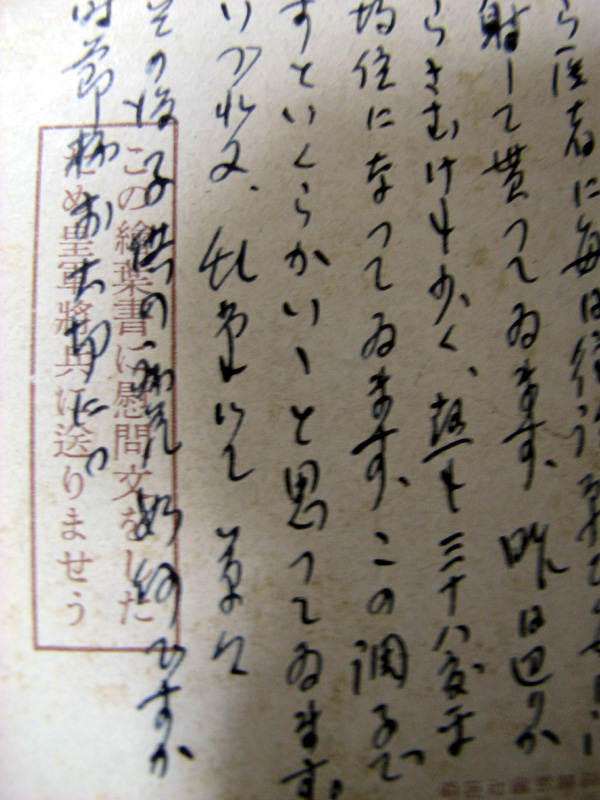 ら医者に毎日往診
射して貰つてゐます、昨日辺りか
らさむけも少く、熱も三十八度平
均位になつてゐます、この調子で
すといくらかいゝと思つてゐます。
いづれ又、乱筆にて 草々
その後子供の病気如何ですか
時節柄お大切に。
この繪葉書に慰問文をした
ため皇軍將兵に送りませう